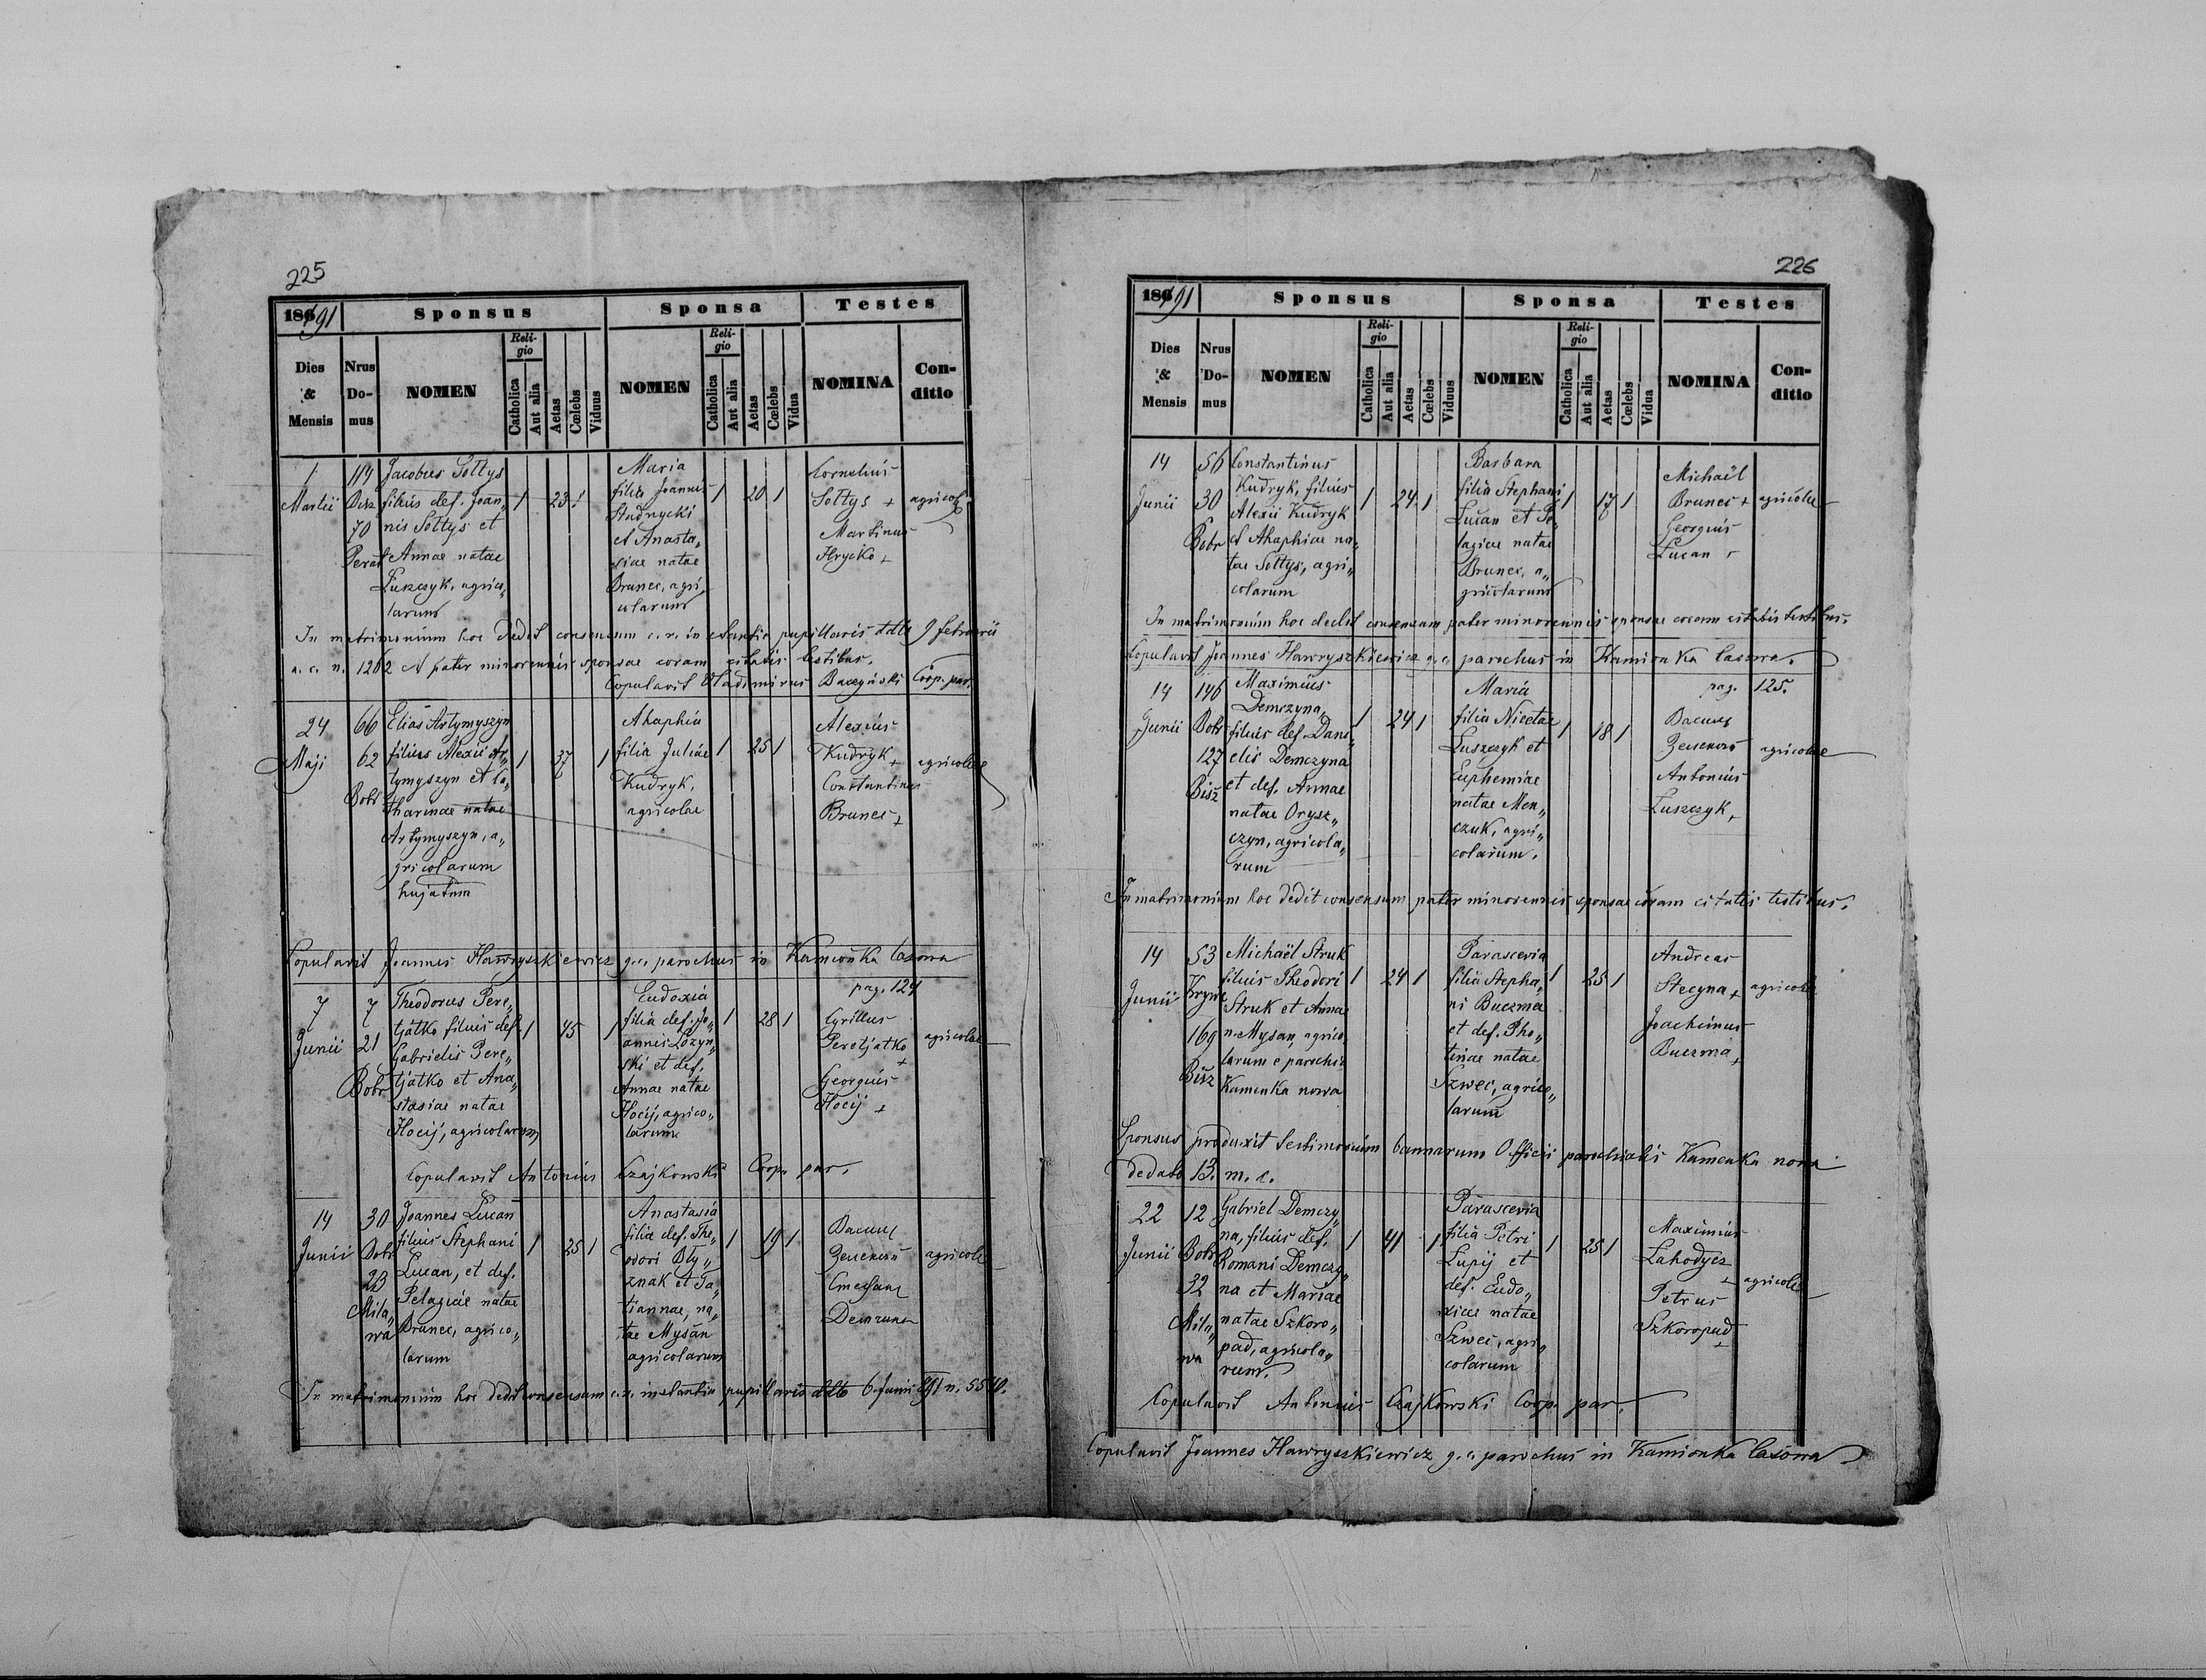 225
1891
Sponsus
Sponsa
Testes
Dies & Mensis
Nrus Do-mus
NOMEN
Reli-gio
Catholica
Aut alia
Aetas
Cœlebs
Viduus
NOMEN
Reli-gio
Catholica
Aut alia
Aetas
Cœlebs
Vidua
NOMINA
Con-ditio
1
Martii
114
70
Jacobus Sołtys
filius def. Joan„
nis Sołtys et
Annae natae
Łuszczyk, agrico„
larum
1 23 1
Maria
filia Joannis
Studnycki
et Anasta„
siae natae
Brunec, agri„
colarum
1 20 1
Cornelius
Sołtys +
Martinus
Hryćko +
agricolae
In matrimonium hoc dedit consensum c. r. instantia pupillaris ddto 9 februarii
a. c. n. 1262 et pater minorennis sponsae coram citatis testibus.
Copulavit Vladimirus Baczyński Coop. par.
24
Maji
66
62
Bobr
Elias Artymyszyn
filius Alexii Ar„
tymyszyn et Ca„
tharinae natae
Artymyszyn, a„
gricolarum
hujatum
1 37 1
Ahaphia
filia Juliae
Kudryk,
agricolae
1 25 1
Alexius
Kudryk +
Constantinus
Brunec +
agricolae
Copulavit Joannes Hawryszkiewicz g. c. parochus in Kamionka lasowa
pag. 124
7
Junii
7
21
Bobr
Theodorus Pere„
tjatko filius def.
Gabrielis Pere„
tjatko et Ana„
stasiae natae
Hocij, agricolarum
1 45 1
Eudoxia
filia def. Jo„
annis Łozyn„
ski et def.
Annae natae
Hocij, agrico„
larum
1 28 1
Cyrillus
Peretjatko
+
Georgius
Hocij +
agricolae
Copulavit Antonius Czajkowski Coop. par.
14
Junii
30
Bobr
23
Mila„
wa
Joannes Łucan
filius Stephani
Łucan, et def.
Pelagiae natae
Brunec, agrico„
larum
1 25 1
Anastasia
filia def. The„
odori Oły„
znak et Ta„
tiannae, na„
tae Mysan
agricolarum
1 19 1
Василь
Зеленкo
Стефан
Демчина
agricolae
In matrimonium hoc dedit consensum c. r. instantia pupillaris ddto 6. Junii 891 n. 5540.
226
1891
Sponsus
Sponsa
Testes
Dies & Mensis
Nrus Do-mus
NOMEN
Reli-gio
Catholica
Aut alia
Aetas
Cœlebs
Viduus
NOMEN
Reli-gio
Catholica
Aut alia
Aetas
Cœlebs
Vidua
NOMINA
Con-ditio
14
Junii
56
30
Bobr
Constantinus
Kudryk, filius
Alexii Kudryk
et Ahaphiae na„
tae Sołtys, agri„
colarum
1 24 1
Barbara
filia Stephani
Łucan et Pe„
lagiae natae
Brunec, a„
gricolarum
1 17 1
Michaël
Brunec +
Georgius
Łucan +
agricolae
In matrimonium hoc dedit consensum pater minorennis sponsae coram citatis testibus.
Copulavit Joannes Hawryszkiewicz g. c. parochus in Kamionka lasowa.
pag. 125.
14
Junii
146
Bobr
127
Bisz
Maximus
Demczyna,
filius def. Dani„
elis Demczyna
et def. Annae
natae Orysz„
czyn, agricola„
rum
1 24 1
Maria
filia Nicetae
Łuszczyk et
Euphemiae
natae Men„
czuk, agri„
colarum.
1 18 1
Василь
Зеленкo
Antonius
Łuszczyk +
agricolae
In matrimonium hoc dedit consensum pater minorennis sponsae coram citatis testibus.
14
Junii
53
169
Bisz
Michaël Struk
filius Theodori
Struk et Annae
n. Mysan, agrico„
larum e parochia
Kamenka nowa
1 24 1
Parascevia
filia Stepha„
ni Buczma
et def. Pho„
tinae natae
Szwec, agrico„
larum
1 25 1
Andreas
Stecyna +
Joachimus
Buczma +
agricolae
Sponsus produxit testimonium bannorum Officii parochialis Kamenka nova
dedato 13. m. c.
22
Junii
12
Bobr
32
Mila„
wa
Gabriel Demczy„
na, filius def.
Romani Demczy„
na et Mariae
natae Szkoro„
pad, agricola„
rum.
1 41 1
Parascevia
filia Petri
Łupij et
def. Eudo„
xiae natae
Szwec, agri„
colarum
1 25 1
Maximus
Lahodycz
+
Petrus
Szkoropad
+
agricolae
Copulavit Antonius Czajkowski Coop. par.
Copulavit Joannes Hawryszkiewicz g. c. parochus in Kamionka lasowa